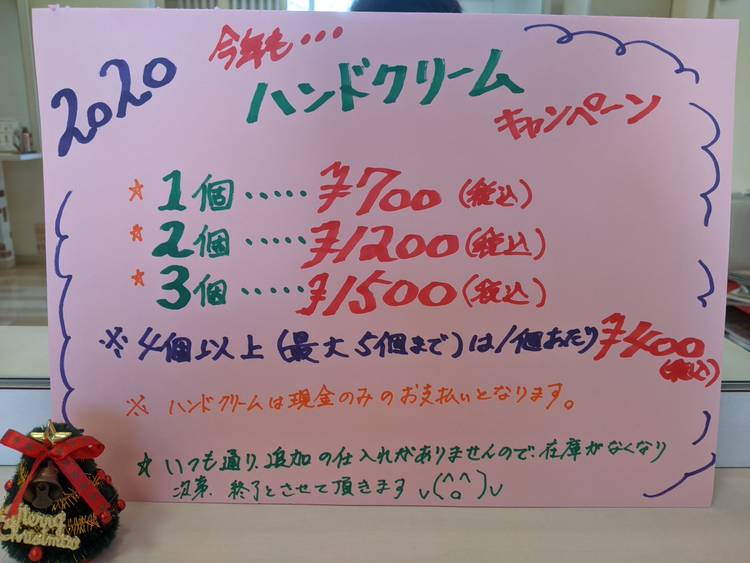 2020
今年も・・・
ハンドクリーム
キャンペーン
☆ 1個・・・・・¥700(税込)
☆ 2個・・・・・¥1200(税込)
☆ 3個・・・・・¥1500(税込)
※ 4個以上(最大5個まで)は1個あたり¥400(税込)
※ ハンドクリームは現金のみのお支払いとなります。
☆ いつも通り、追加の仕入れがありませんので、在庫がなくなり
次第、終了とさせて頂きます v(^o^)v
Merry
Christmas